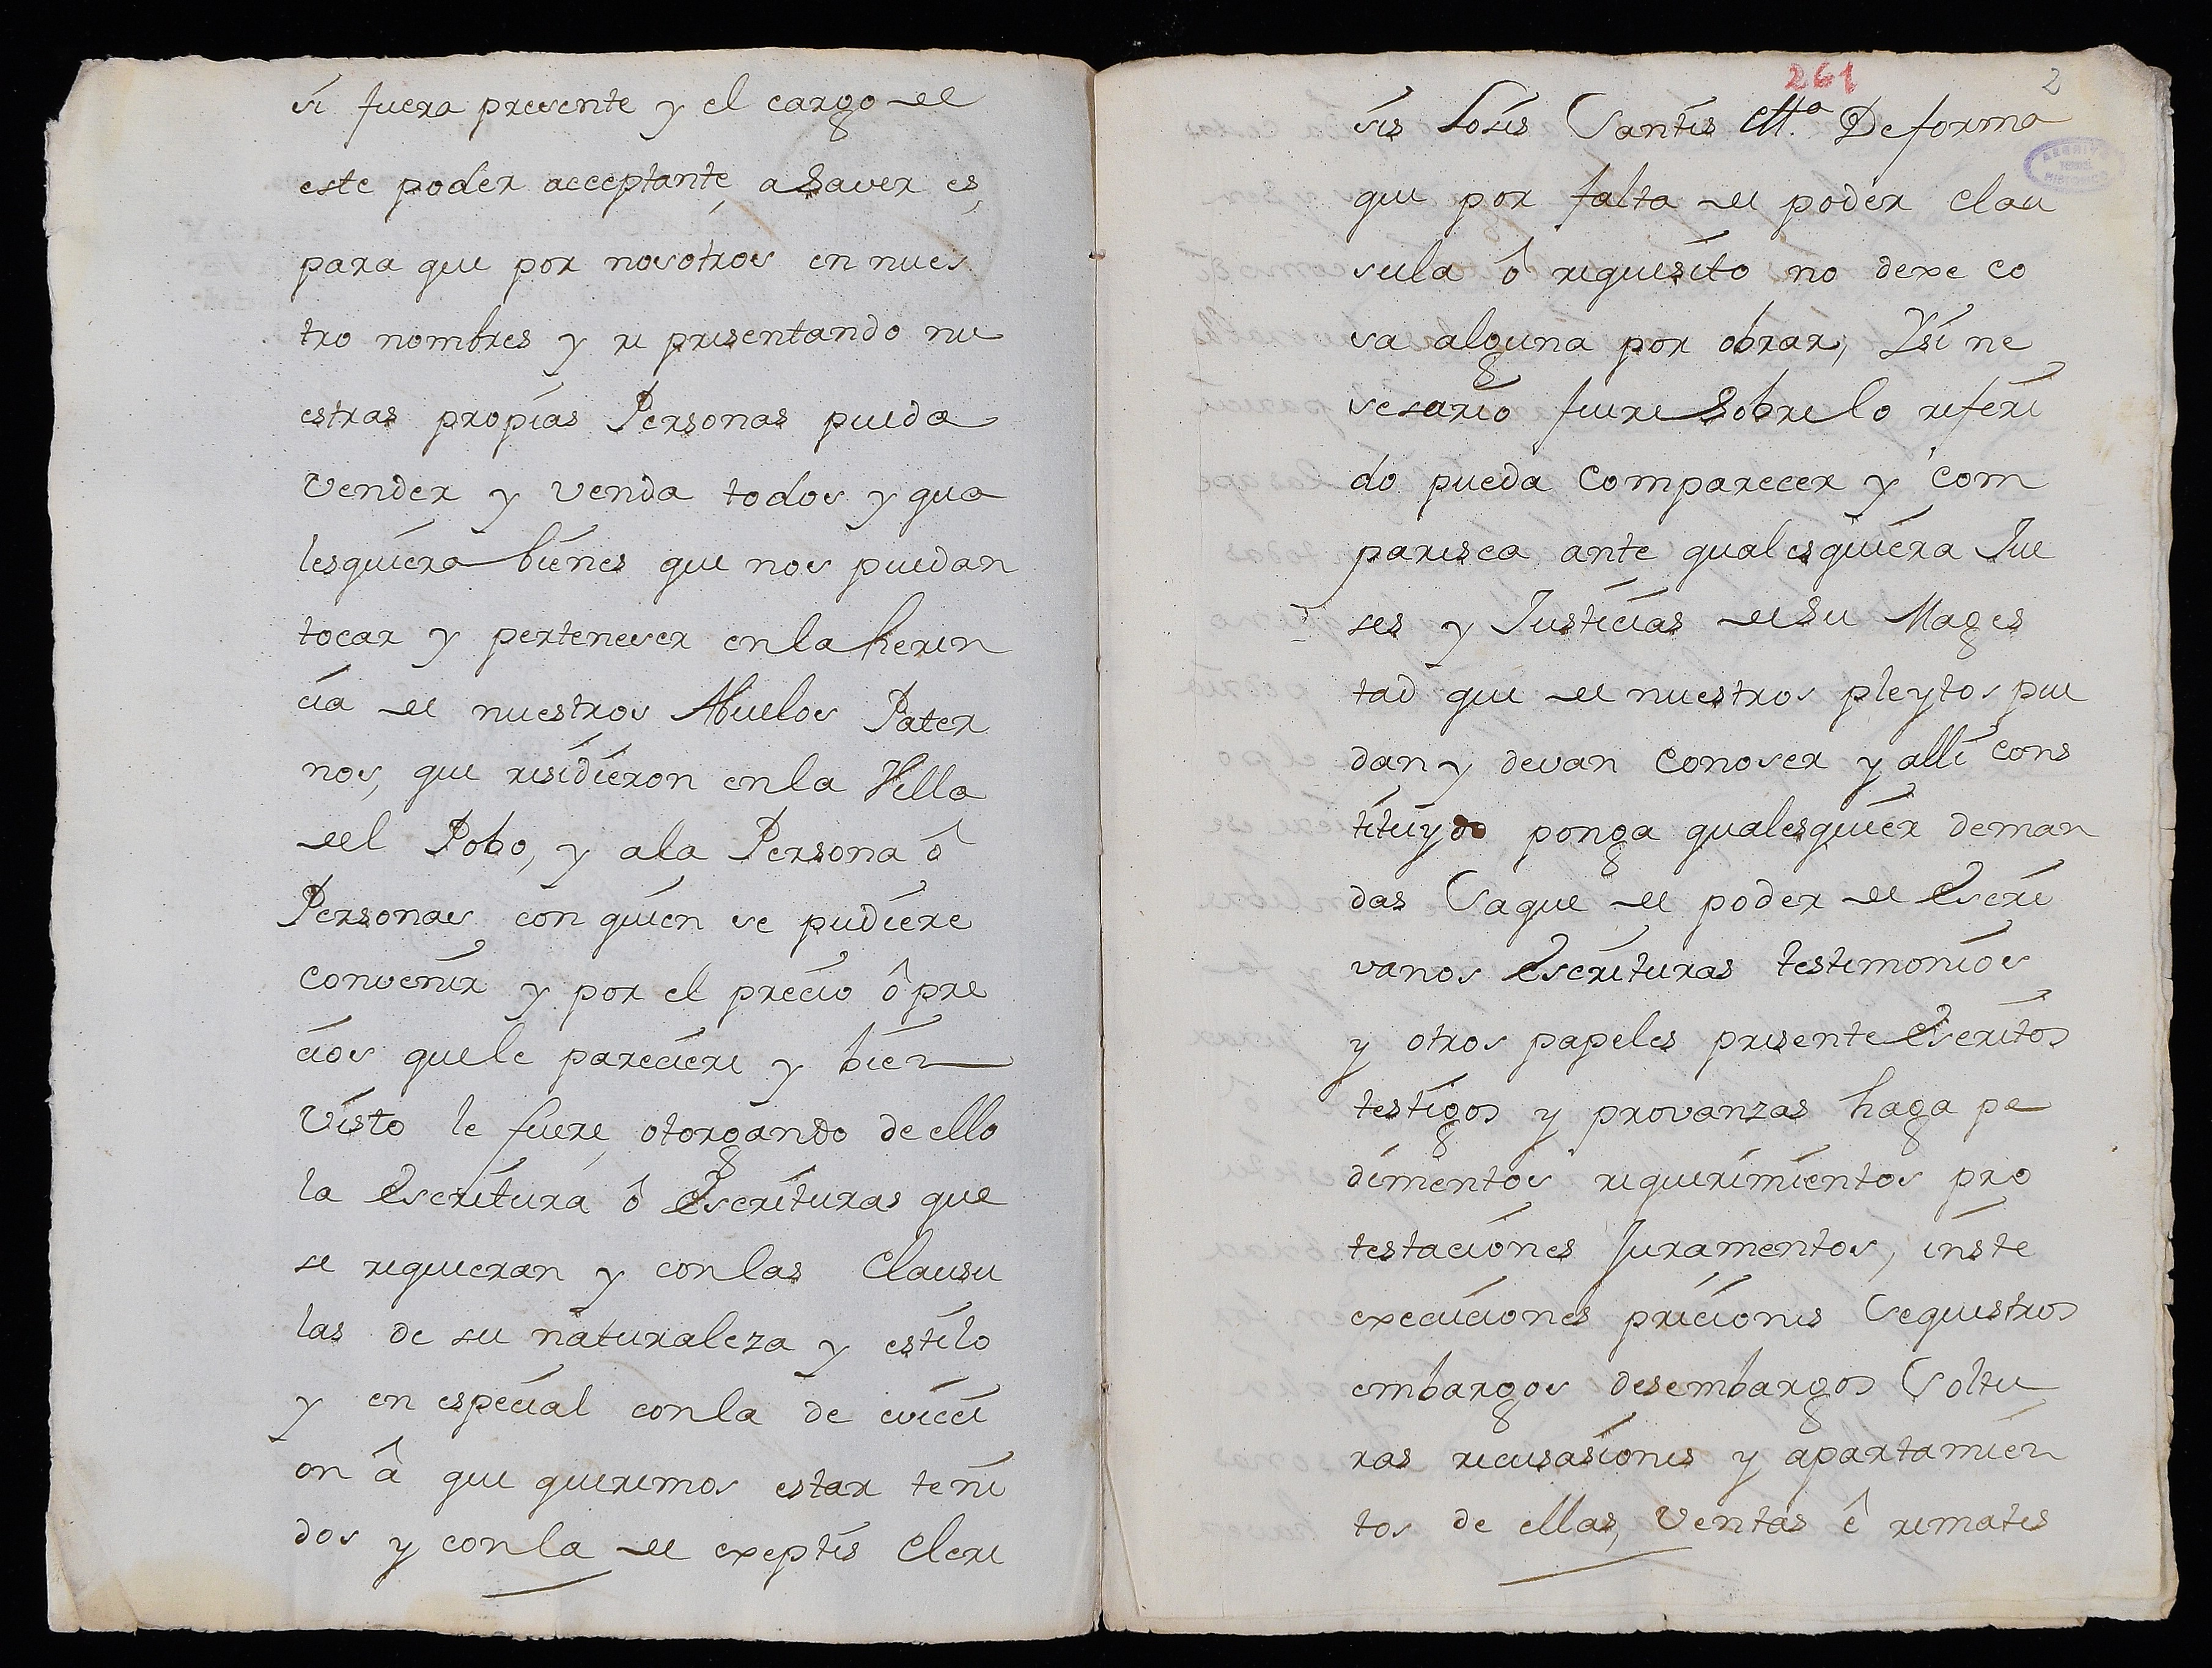 si fuera presente y el cargo de
este poder acceptante, a Saver es,
para que por nosotros en nues
tro nombres y re presentando nu
estras propias Personas pueda
vender y venda todos y qua
lesquiera bienes que nos puedan
tocar y perteneser en la heren
cia de nuestros Abuelos Pater
nos, que residieron en la Villa
del Pobo, y a la Persona ô
Personas con quien se pudiere
convenir y por el precio ô pre
cios que le pareciere y bien
visto le fuere, otorgando de ello
la Escritura ô Escrituras que
se requieran y con las Clausu
las de su naturaleza y estilo
y en especial con la de evicci
on â que queremos estar teni
dos y con la de exeptis Cleri
261
2
sis Losis Santis Mª. De forma
que por falta de poder clau
sula ô requisito no dexe co
sa alguna por obrar, Y si ne
sesario fuere Sobre lo referi
do pueda Comparecer y com
paresca ante qualesquiera Jue
ses y Justicias de Su Mages
tad que de nuestros pleytos pue
dan y devan Conoser y alli cons
tituydo ponga qualesquier deman
das Saque de poder de Escri
vanos Escrituras testimonios
y otros papeles presente Escritos
testigos y provanzas haga pe
dimentos requerimientos pro
testaciones Juramentos, inste
execuciones priciones Sequestros
embargos desembargos Soltu
ras recusasiones y apartamien
tos de ellas, Ventas ê remates